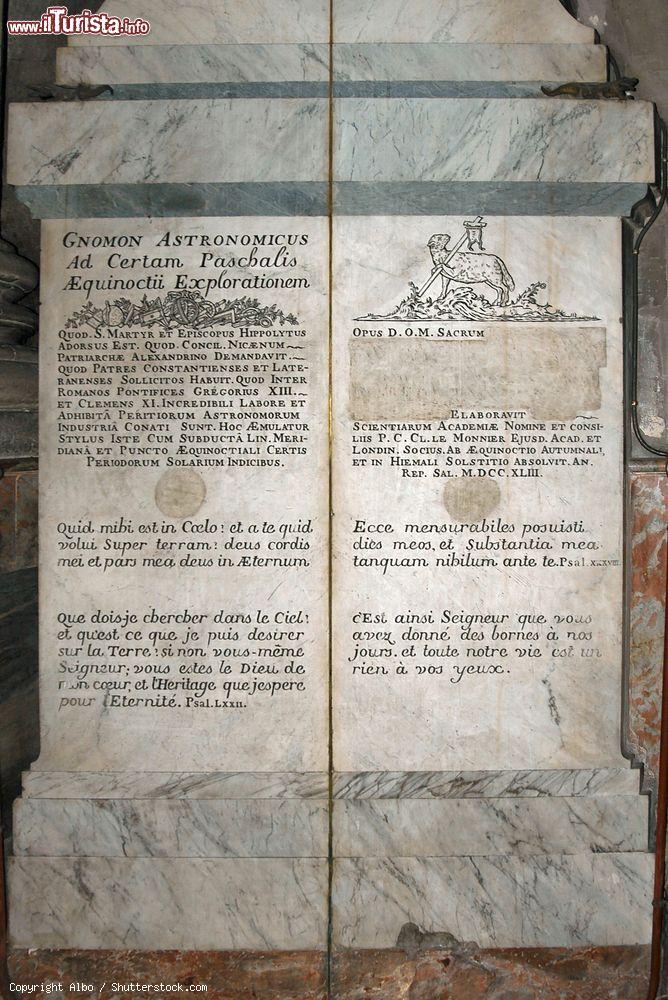 www.ilTurista.info
GNOMON ASTRONOMICUS
Ad Certam Paschalis
Æquinoctii Explorationem
QUOD. S. MARTYR ET EPISCOPUS HIPPOLYTUS
ADORSUS EST. QUOD. CONCIL. NICÆNUM
PATRIARCHÆ ALEXANDRINO DEMANDAVIT.
QUOD PATRES CONSTANTIENSES ET LATE-
RANENSES SOLLICITOS HABUIT. QUOD INTER
ROMANOS PONTIFICES GRÉGORIUS XIII.
ET CLEMENS XI. INCREDIBILI LABORE ET
ADHIBITÂ PERITIORUM ASTRONOMORUM
INDUSTRIÂ CONATI SUNT. HOC ÆMULATUR
STYLUS ISTE CUM SUBDUCTÂ LIN. MERI-
DIANÂ ET PUNCTO ÆQUINOCTIALI CERTIS
PERIODORUM SOLARIUM INDICIBUS.
Quid mihi est in Cœlo? et a te quid
volui Super terram? deus cordis
mei et pars mea deus in Æternum
Que dois-je chercher dans le Ciel?
et qu'est ce que je puis desirer
sur la Terre? si non vous-même
Seigneur; vous estes le Dieu de
mon cœur, et l'Heritage que j'espere
pour l'Eternité. Psal. LXXII.
OPUS D. O. M. SACRUM
ELABORAVIT
SCIENTIARUM ACADEMIÆ NOMINE ET CONSI-
LIIS P. C. CL. LE MONNIER EJUSD. ACAD. ET
LONDIN. SOCIUS. AB ÆQUINOCTIO AUTUMNALI,
ET IN HIEMALI SOLSTITIO ABSOLVIT. AN.
REP. SAL. M.DCC.XLIII.
Ecce mensurabiles posuisti
dies meos, et Substantia mea
tanquam nihilum ante te. Psal.
c'Est ainsi Seigneur que vous
avez donné des bornes à nos
jours. et toute notre vie est un
rien à vos yeux.
Copyright Albo / Shutterstock.com